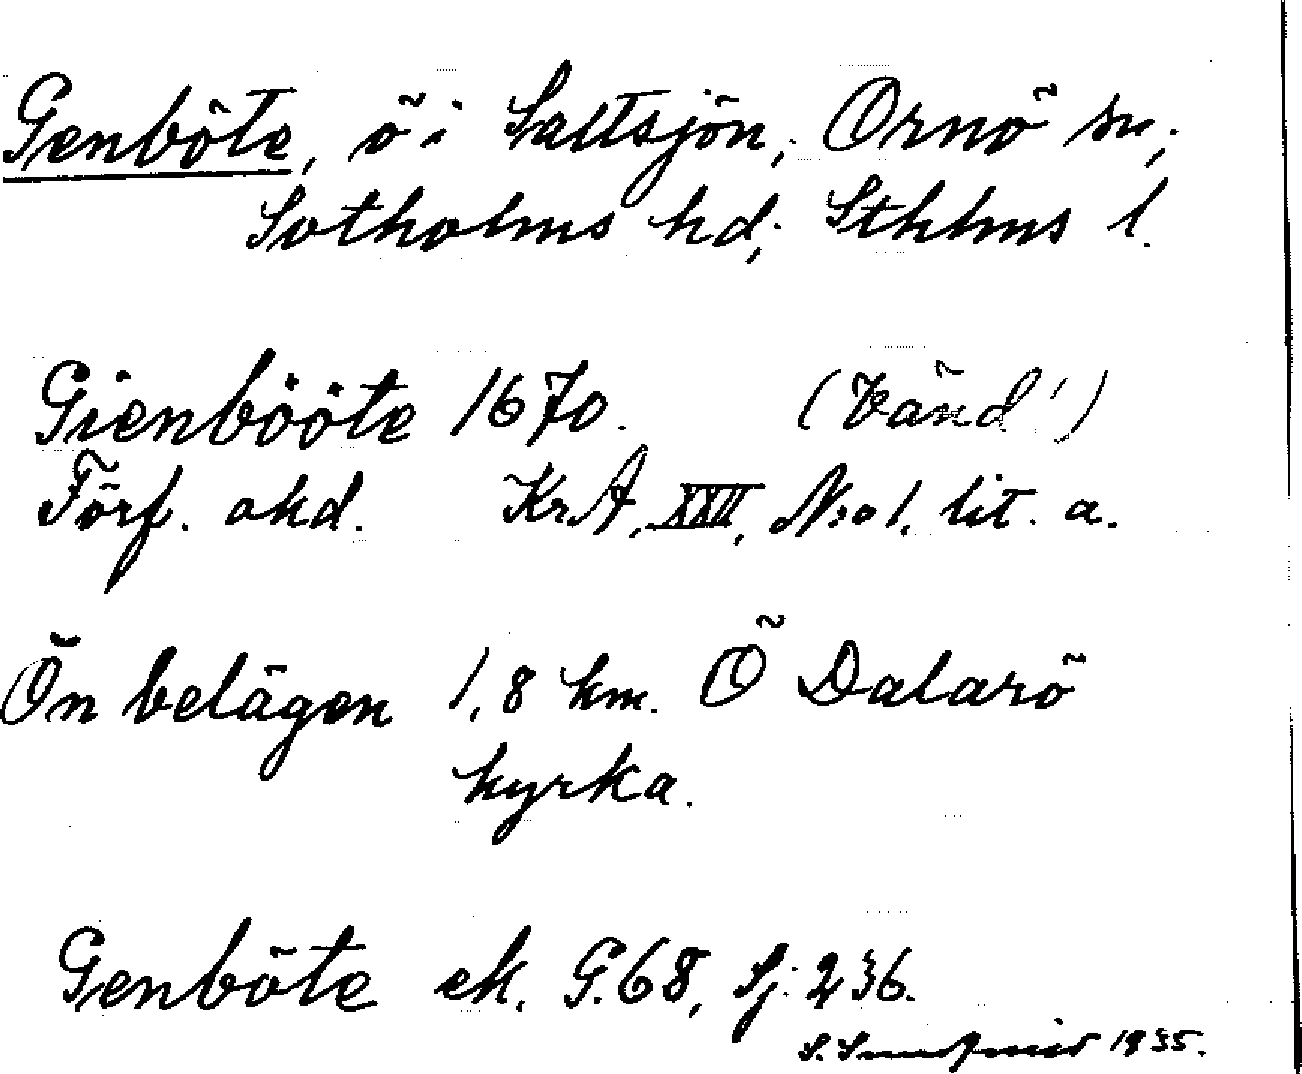 Genböte, ö i Saltsjön, Ornö sn,
Sotholms hd, Sthlms l.
Gienbööte 1670. (Vänd!)
Förf. okd. KrA, XXVI, N:o 1, lit. a.
Ön belägen 1,8 km. Ö Dalarö
kyrka.
Genböte ek. G.68, Sj: 236.
S. 1935.